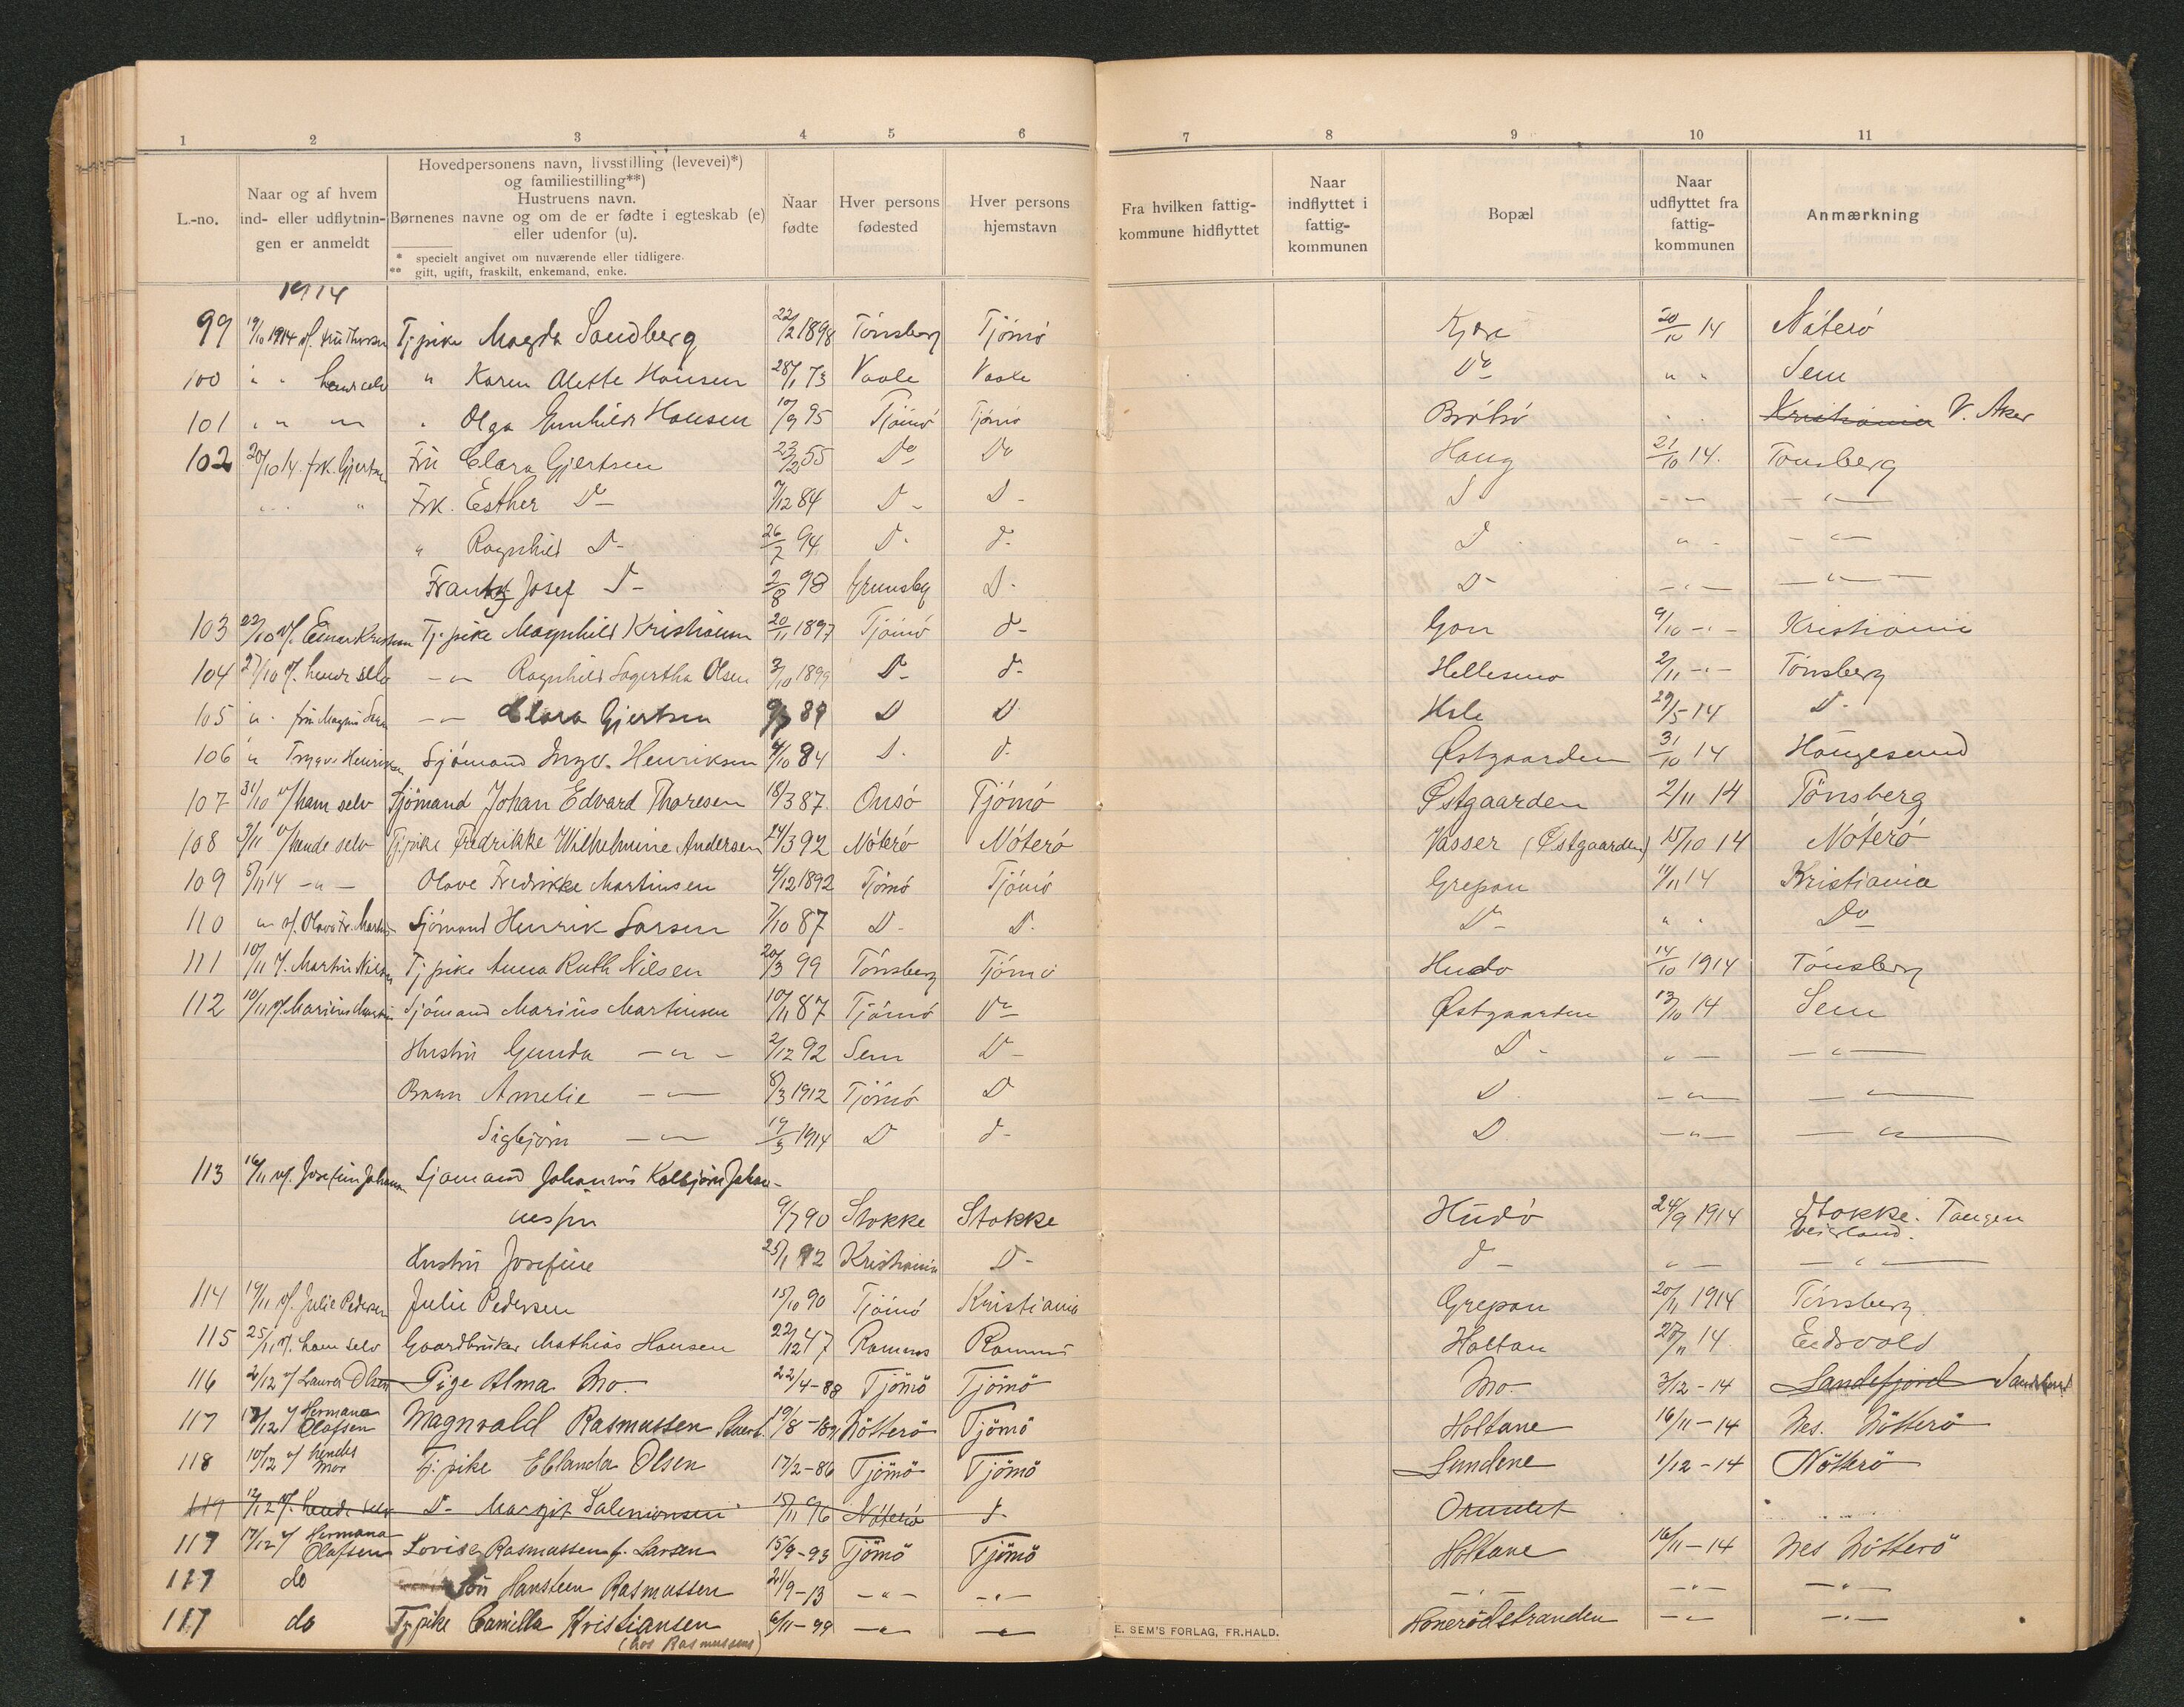 1 2 3 4 5 6 7 8 9 10 11
L.-no.
Naar og af hvem
ind- eller udflytnin-
gen er anmeldt
Hovedpersonens navn, livsstilling (levevei)*)
og familiestilling**)
Hustruens navn.
Børnenes navne og om de er fødte i egteskab (e)
eller udenfor (u).
* specielt angivet om nuværende eller tidligere.
** gift, ugift, fraskilt, enkemand, enke.
Naar
fødte
Hver persons
fødested
Hver persons
hjemstavn
Fra hvilken fattig-
kommune hidflyttet
Naar
indflyttet i
fattig-
kommunen
Bopæl
Naar
udflyttet fra
fattig-
kommunen
Anmærkning
1914
99 19/10 1914 Tj. pike Magda Sandberg 22/2 1898 Tönsberg Tjömö Kjære 20/10 14 Nöterö
100 " " " Karen Alette Hansen 28/1 73 Vaale Vaale Do " " Sem
101 " " " " Olga Hansen 10/9 95 Tjömö Tjömö Bröttö " " Kristiania V. Aker
102 20/10 14. frk. Gjertsen Fru Clara Gjertsen 23/2 55 Do Do Haug 21/10 14. Tønsberg
" " Frk. Esther Do 7/12 84 D - D - D - " - - " -
" Ragnhild D - 26/7 94 D - d - D - " - - " -
Frantz Josef D - 2/8 98 D - D - - " - - " -
103 22/10 v/. Einar Kristiansen Tj. pike Magnhild Kristiansen 20/11 1897 Tjömö d - Gon 9/10 - " - Kristiania
104 27/10 v/. hende selv - " - Ragnhild Olsen 3/10 1899 D - d - Hellesmo 2/11 - " - Tönsberg
105 " - " - Clara Gjertsen 9/7 89 D D Hsle 29/5 - 14 D -
106 " Trygve Henriksen Sjömand Ingv. Henriksen 4/10 84 D - d - Østgaarden 31/10 14 Haugesund
107 31/10 v/ ham selv Sjömand Johan Edvard Thoresen 18/3 87. Onsö Tjömö Østgaarden 2/11 14 Tönsberg
108 3/11 v/ hende selv Tj. pike Fredrikke Wilhelmine Andersen 24/3 92 Nöterö Nöterö Vasser (Østgaarden) 15/10 14 Nöterö
109 5/11 14 - " - Olave Fredrikke Martinsen 4/12 1892 Tjömö Tjömö Grepan 11/11 14 Kristiania
110 " v/. Olava Fr. Martins Sjömand Henrik Larsen 7/10 87 D - D - Do " " Do
111 10/11 v/. Martin Nilsen Tj. pike Anna Ruth Nilsen 20/3 99 Tönsberg Tjömö Hudö 14/10 1914 Tönsberg
112 10/11 v/. Marius Martins Sjömand Marius Martinsen 10/11 87 Tjömö Do Østgaarden 13/10 14 Sem
Hustru Gunda - " - 2/12 92 Sem D - D - " - - " -
Barn Amelie - " - 8/3 1912 Tjömö D D - " - - " -
Sigbjörn - " - 19/3 1914 D d - D - " - - " -
113 16/11 v/. Josefine Johannesen Sjömand Johannes Kolbjörn Johan-
nessen 9/7 90 Stokke Stokke Hudö 24/9 1914 Stokke. Tangen
Veierland.
Hustru Josefine 25/1 92 Kristiania D - d - " - - " -
114 19/11 v/. Julie Pedersen Julie Pedersen 15/10 90 Tjömö Kristiania Grepan 20/11 1914 Tönsberg
115 25/11 v/. ham selv Gaardbruker Mathias Hansen 22/12 47 Ramnes Ramnes Holtan 27/11 14. Eidsvold
116 2/12 v/ Laura Olsen Pige Alma Mo. 22/4 - 88 Tjömö Tjömö Mo. 3/12 - 14 Sandefjord
117 17/12 v/ Hermana Olafsen Magnvald Rasmussen Stuert. 19/8 - 89 Nötterö Tjömö Holtane 16/11 - 14 Nes. Nötterö
118 10/12 v/ hendes mor Tj. pike Eblanda Olsen 17/2 - 86 Tjömö Tjömö Sundene 1/12 - 14 Nötterö
119 12/12 v/. hende selv D - Margit Salemonsen 15/11 96 Nöterö d -
117 17/12 v/ Hermana Olafsen Lovise Rasmussen f. Larsen 15/9 - 93 Tjömö Tjömö Holtane 16/11 - 14 Nes Nötterö
117 do Sön Hansteen Rasmussen 21/9 - 13 - " - - " - - " - - " - - " -
117 do Tj. pike Camilla Kristiansen 6/11 - 99 - " - - " - Honerödstranden - " - - " -
(hos Rasmussens)
E. SEM'S FORLAG, FR.HALD.